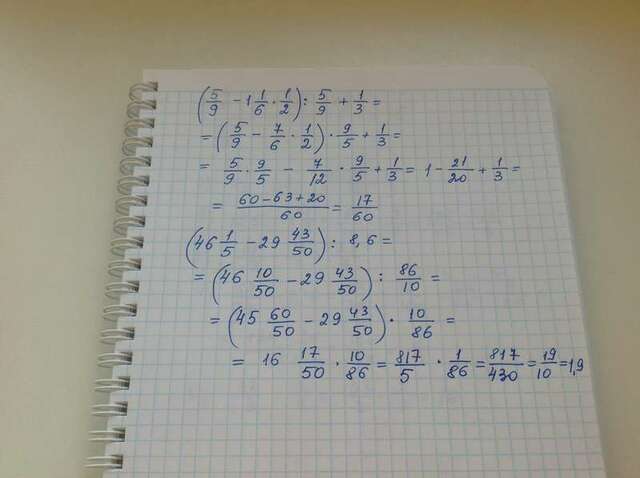 (5/9 - 1 1/6 · 1/2) : 5/9 + 1/3 =
= (5/9 - 7/6 · 1/2) · 9/5 + 1/3 =
= 5/9 · 9/5 - 7/12 · 9/5 + 1/3 = 1 - 21/20 + 1/3 =
= (60 - 63 + 20)/60 = 17/60
(46 1/5 - 29 43/50) : 8,6 =
= (46 10/50 - 29 43/50) : 86/10 =
= (45 60/50 - 29 43/50) · 10/86 =
= 16 17/50 · 10/86 = 817/5 · 1/86 = 817/430 = 19/10 = 1,9